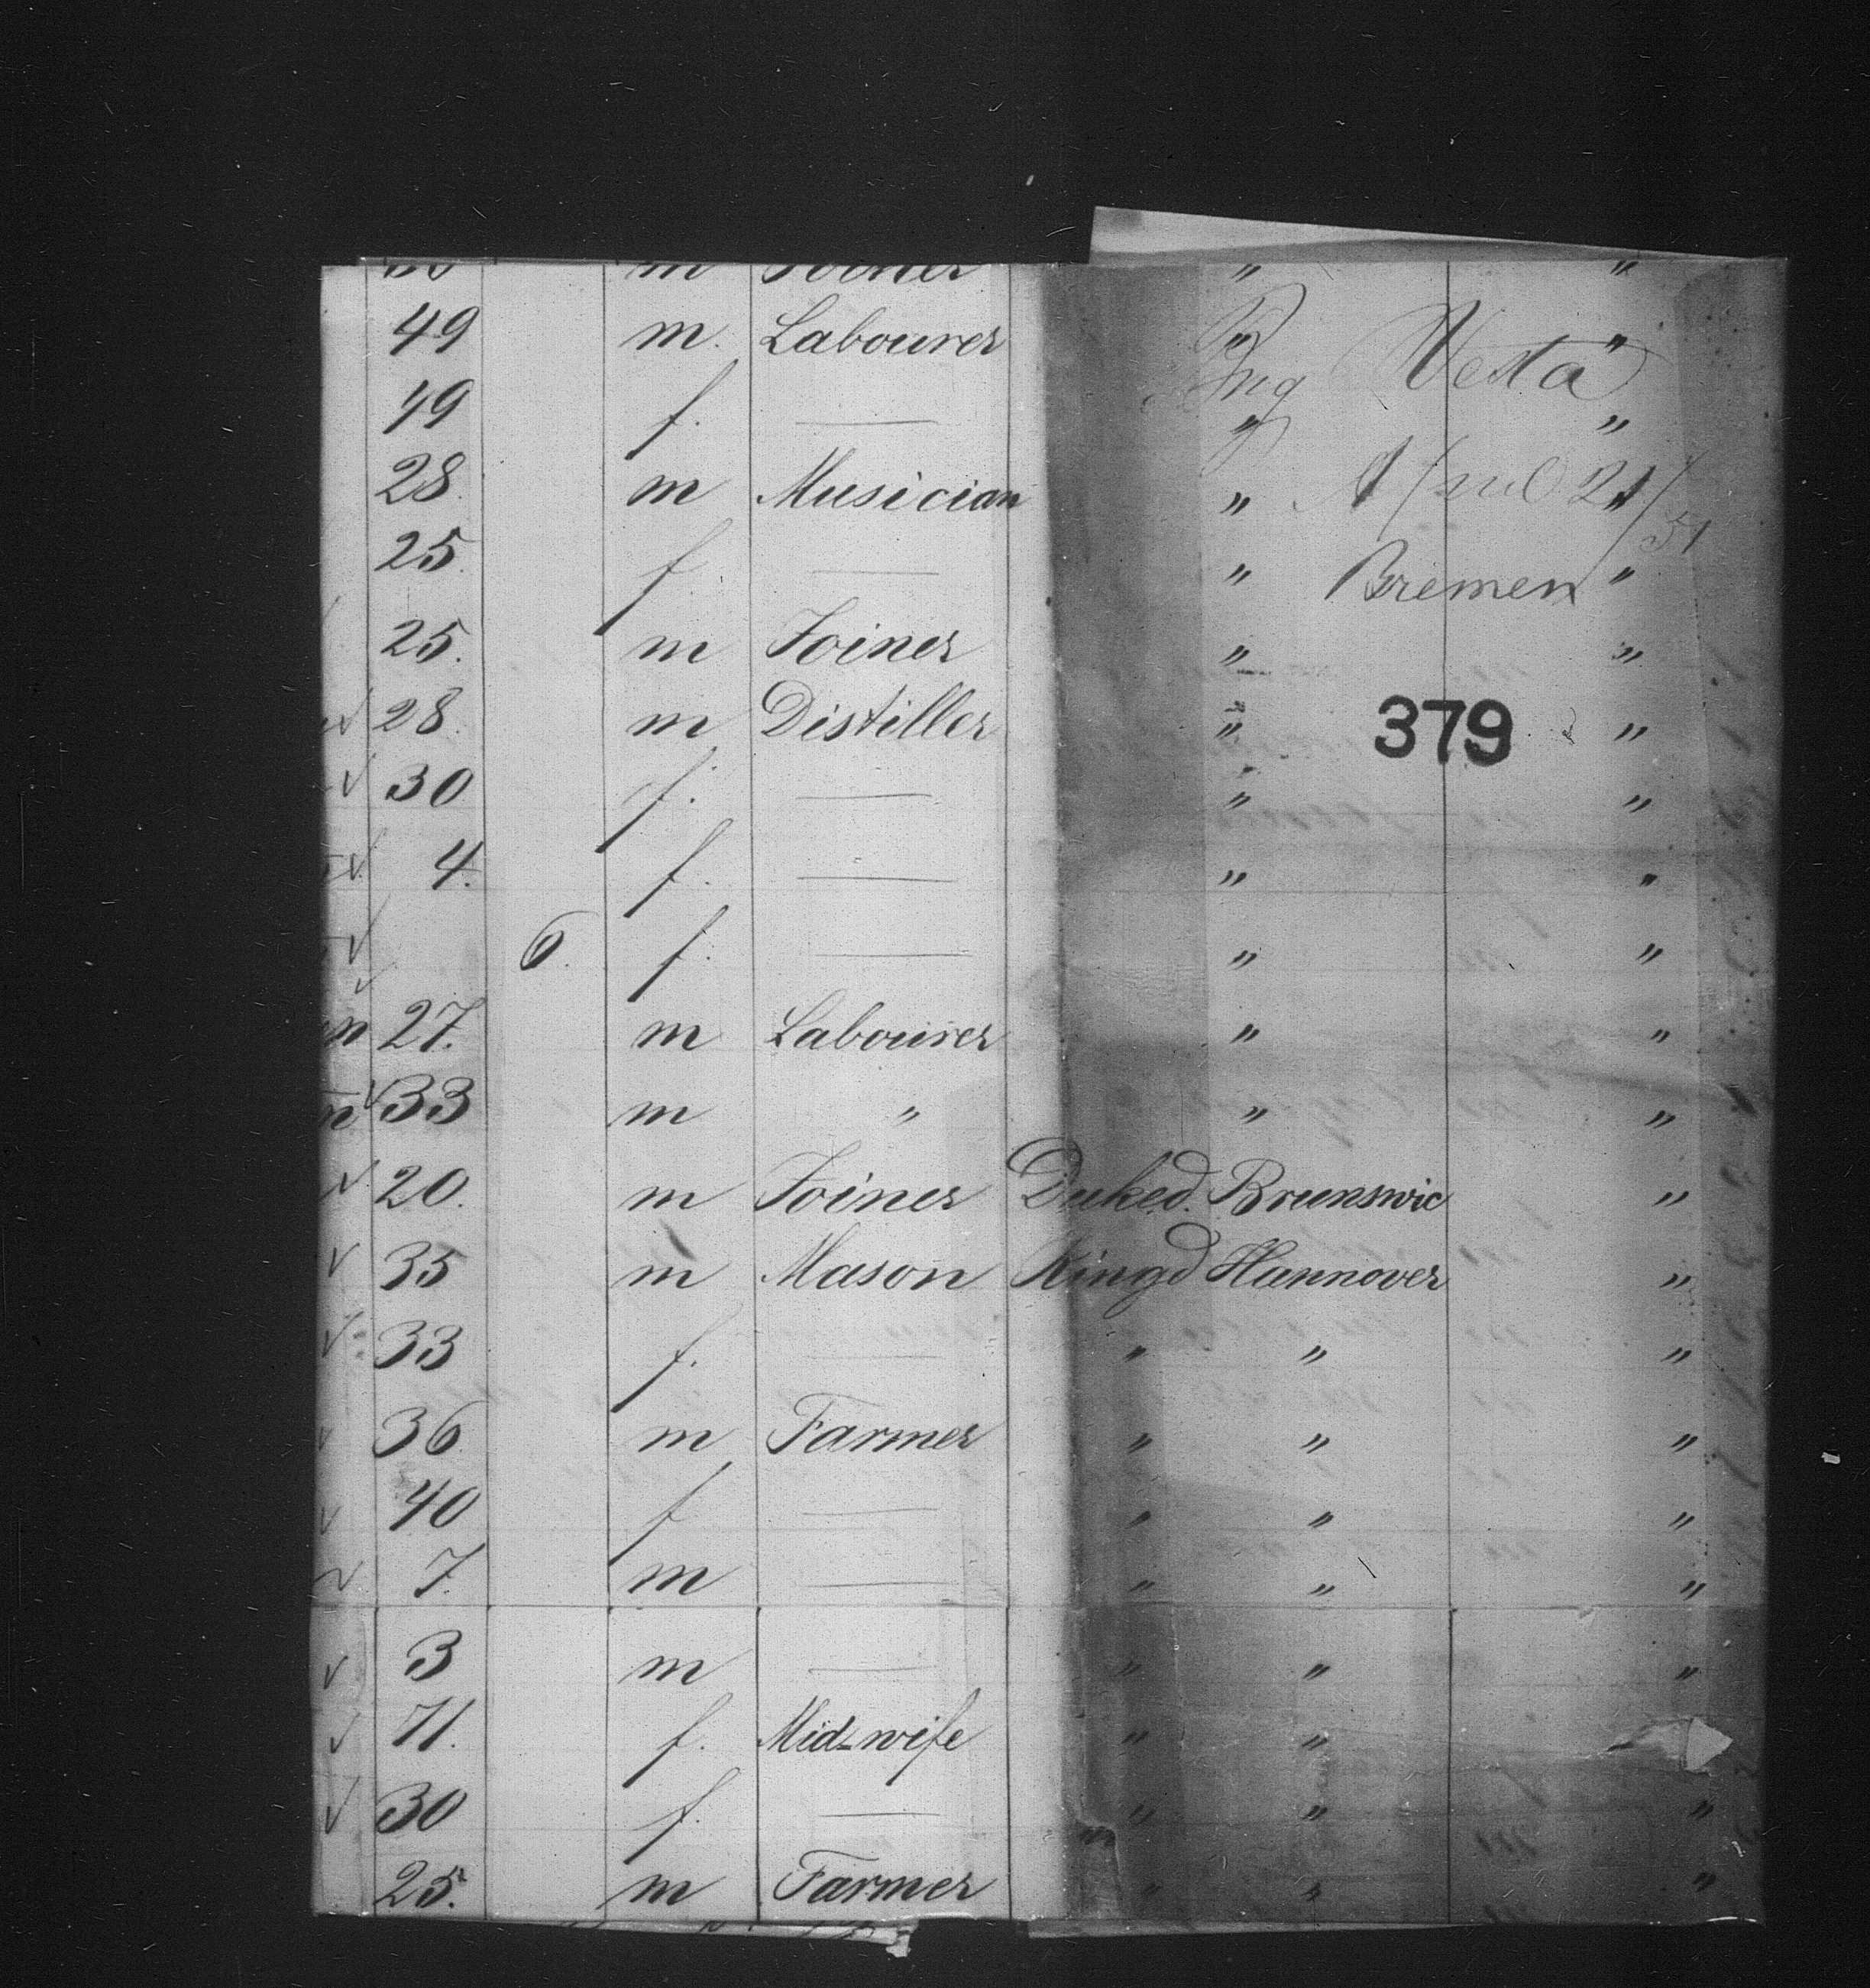 m Joiner " "
49 m. Labourer " "
49 f. — " "
28. m Musician " "
25. f. — " "
25. m Joiner " "
28. m Distiller " "
30 f. — " "
4. f. — " "
6. f. — " "
27. m Labourer " "
33 m " " "
20. m Joiner Duked. Brunswic "
35 m Mason Kingd Hannover "
33 f. — " " "
36 m Farmer " " "
40 f — " " "
7. m — " " "
3 m — " " "
71. f. Mid-wife " "
30 f. — " " "
25. m Farmer " " "
Vesta
April 21/51
Bremen
379